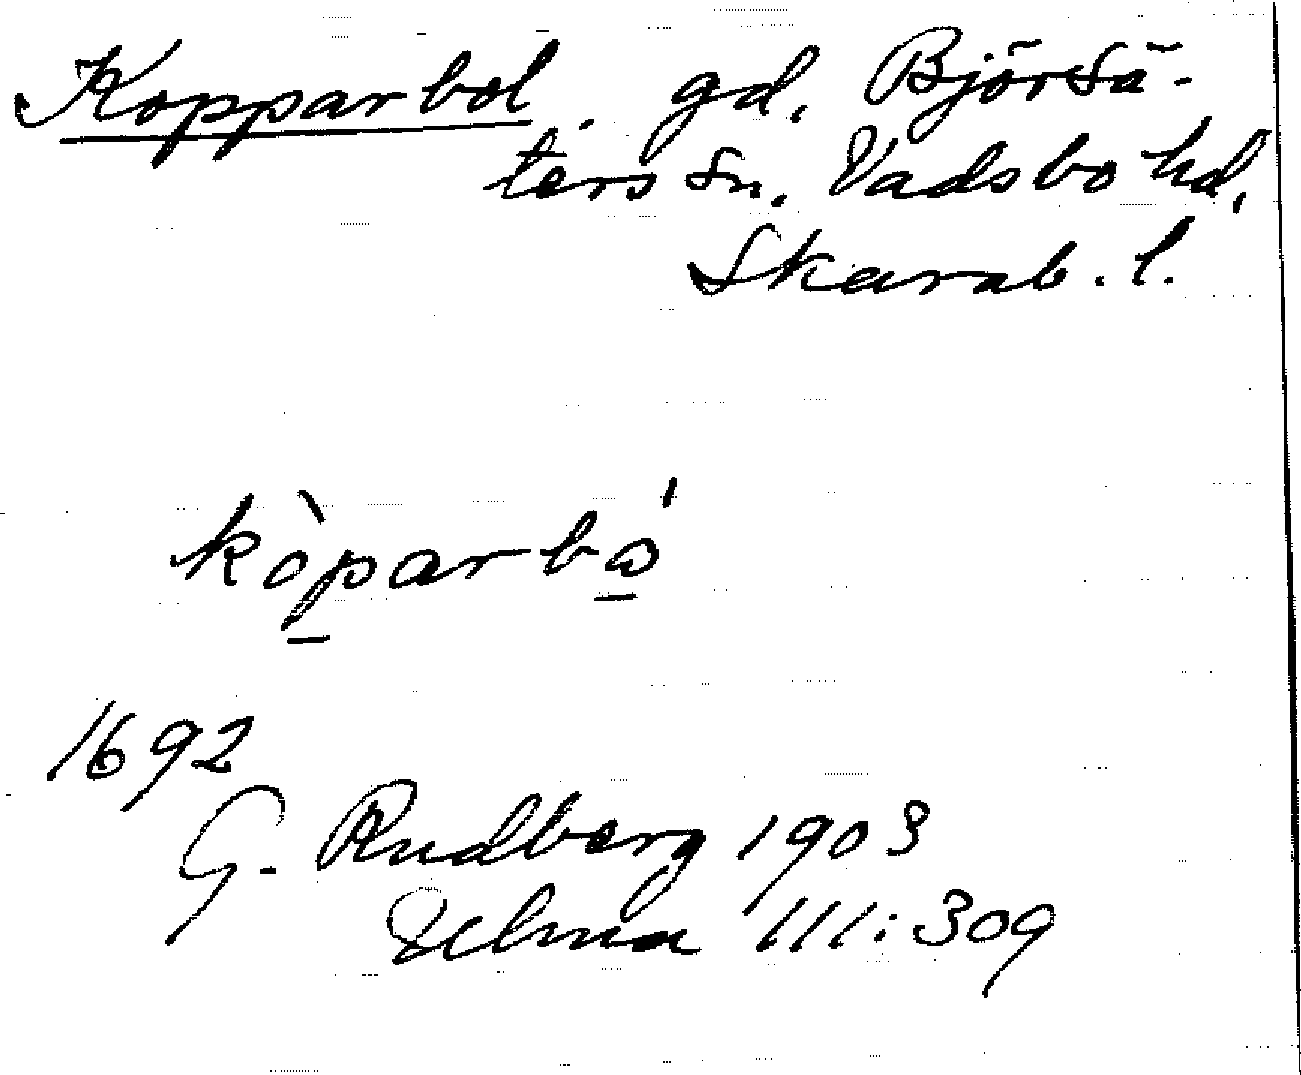 Kopparbol . gd. Björsä-
ters sn. Vadsbo hd.
Skarab. l.
kòparbó
1692
G. Rudberg 1903
111:309